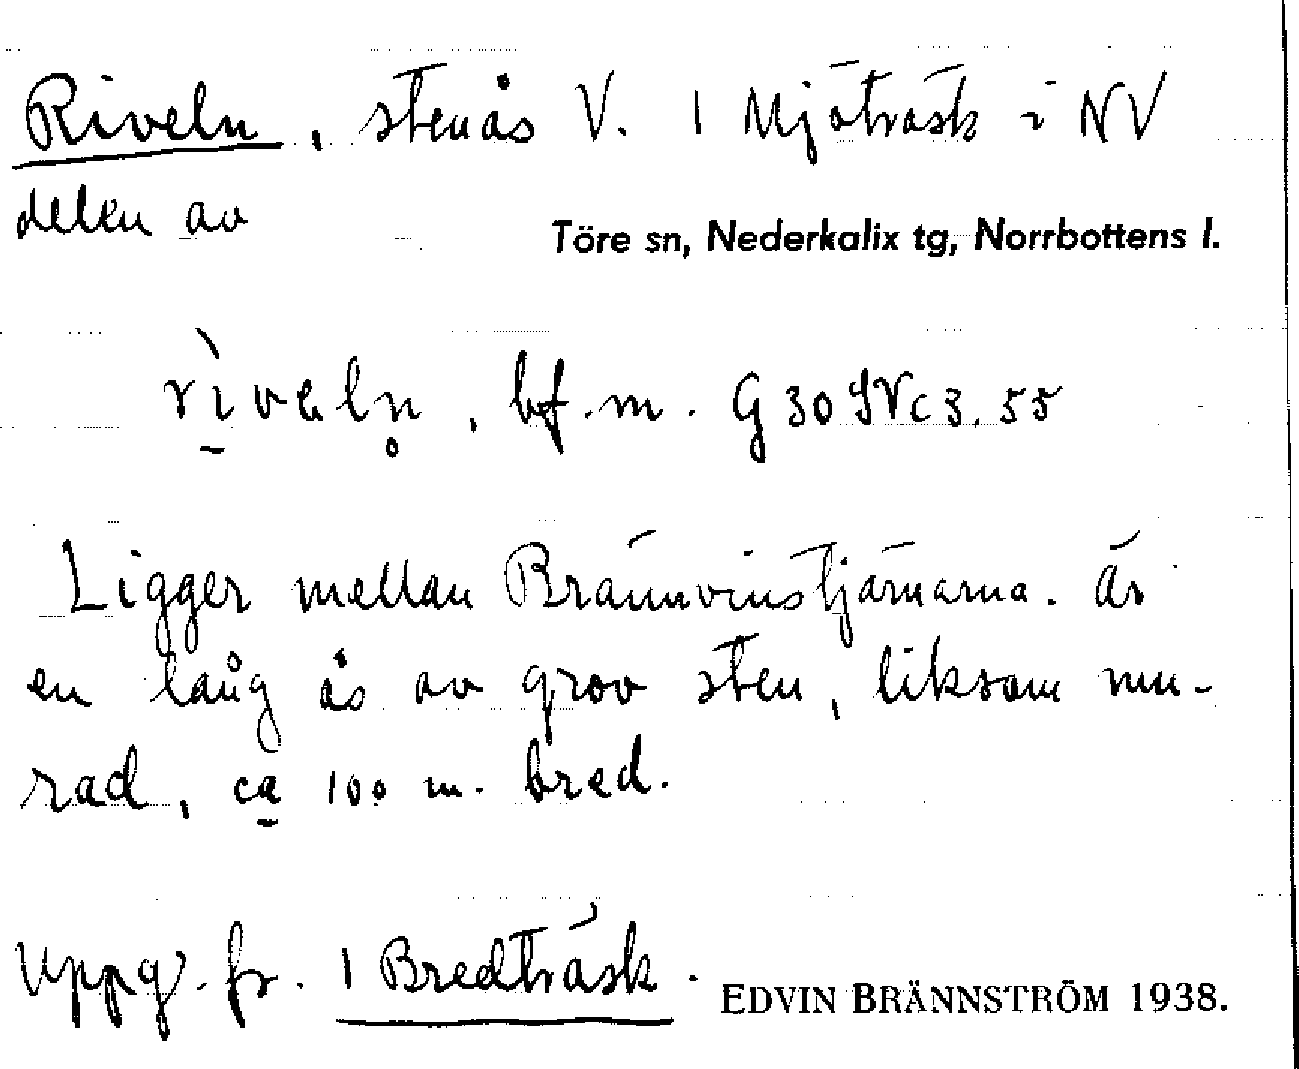 Riveln, stenås V. 1 Mjöträsk i NV
delen av
Töre sn, Nederkalix tg, Norrbottens l.
rìvəln̥, bf. m. G 30 SV c 3. 55
Ligger mellan Brännvinstjärnarna. Är
en lång ås av grov sten, liksom mu-
rad, ca 100 m. bred.
Uppg. fr. 1 Bredträsk.
EDVIN BRÄNNSTRÖM 1938.